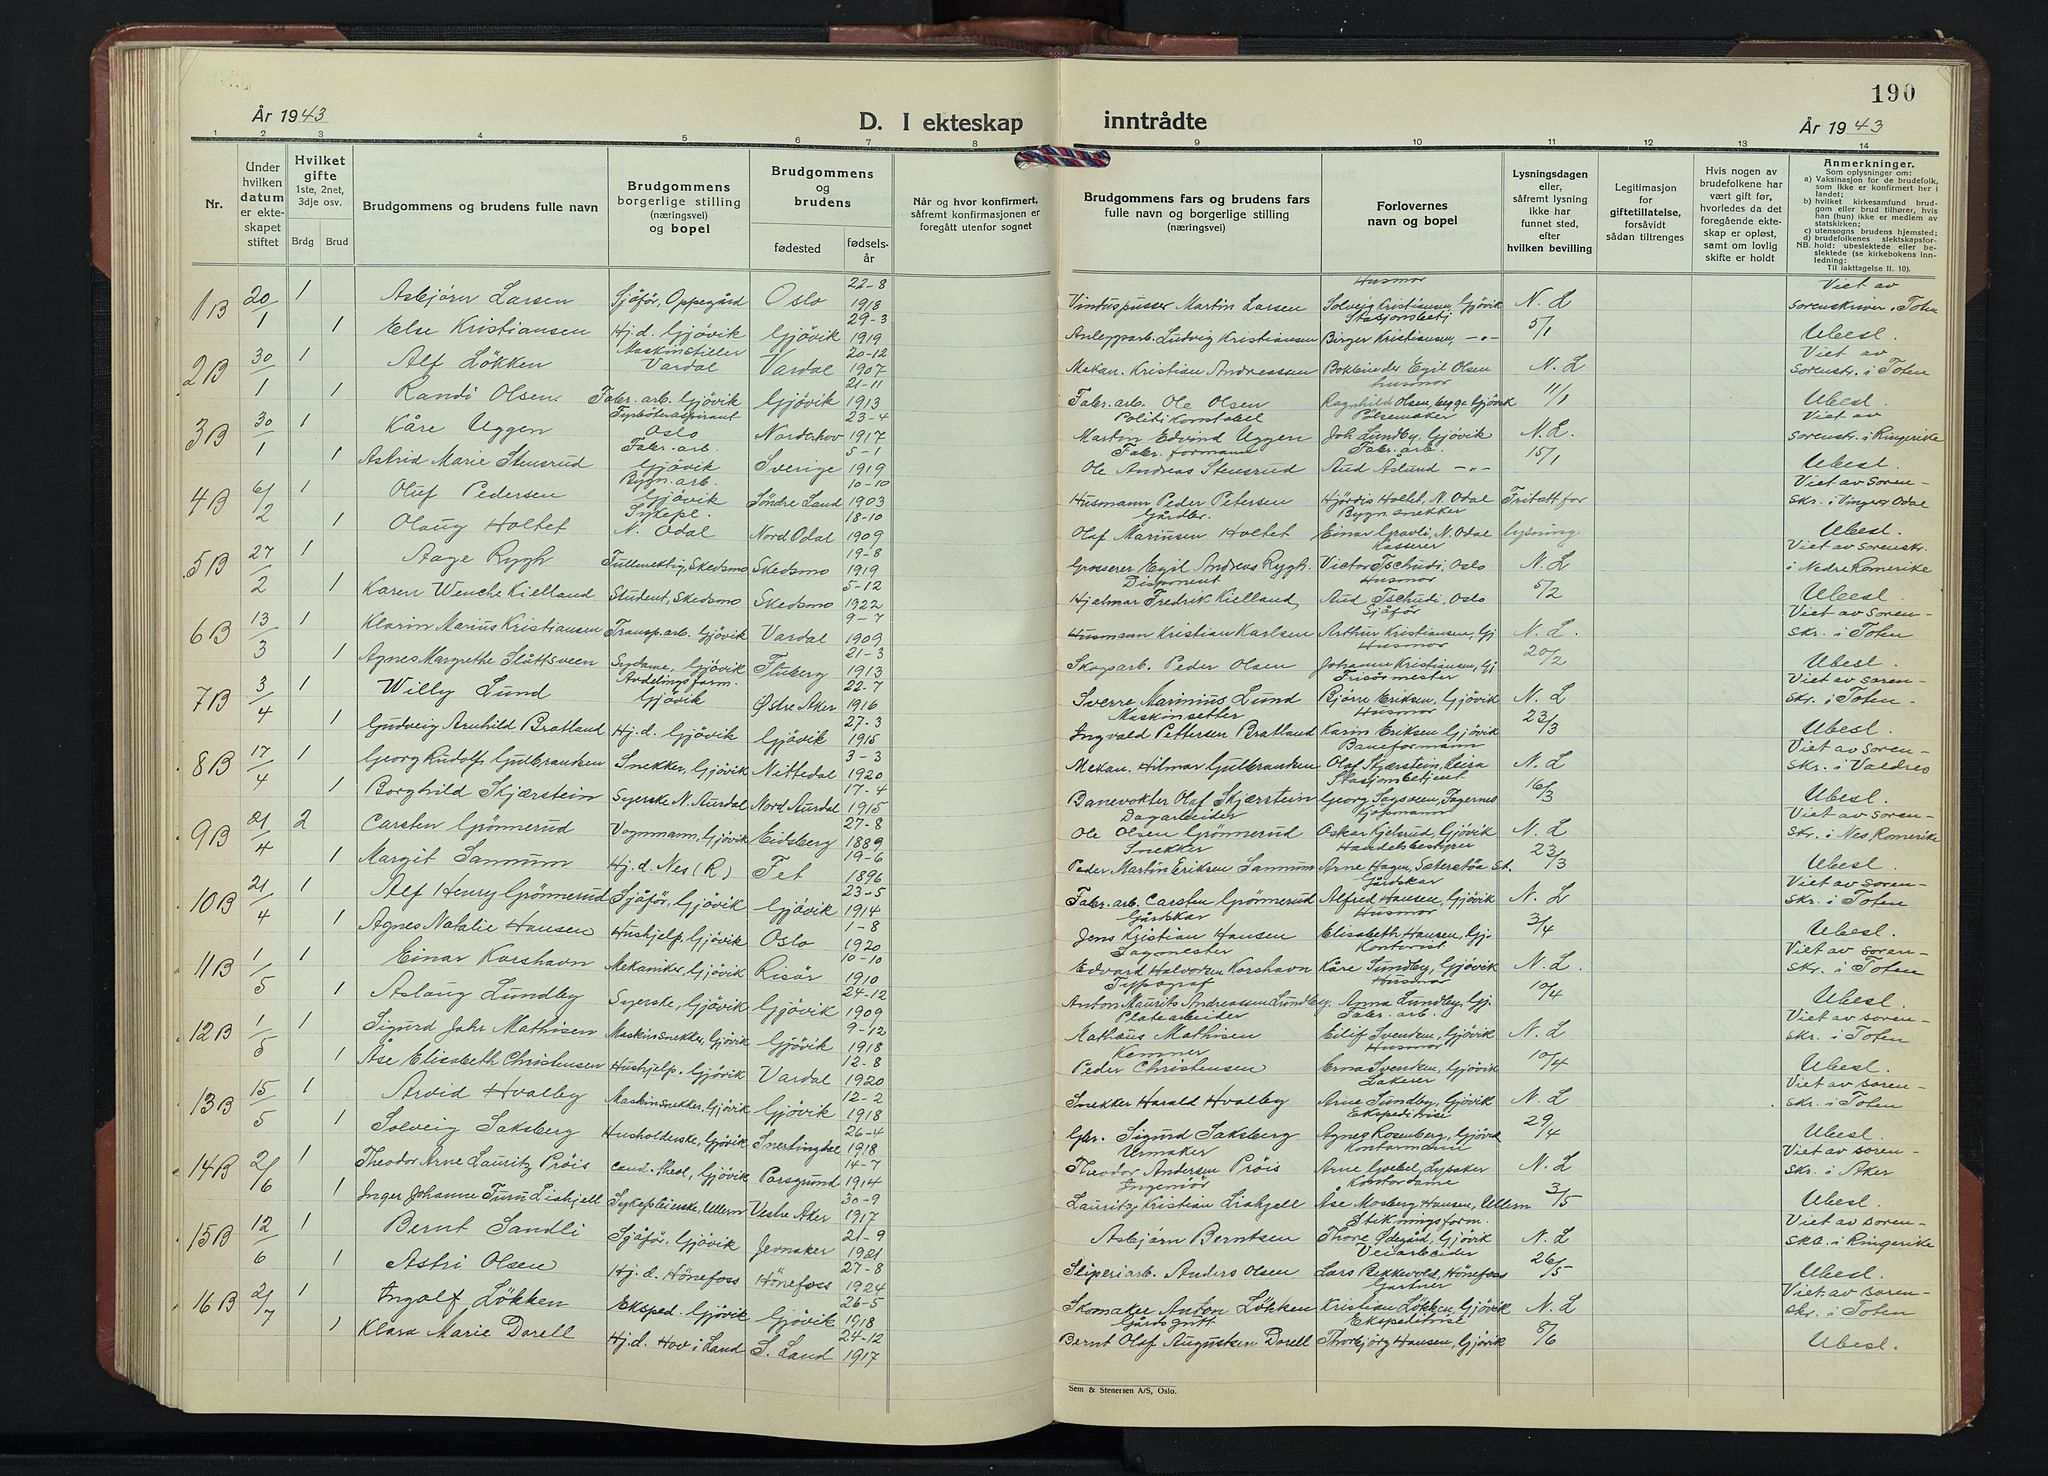 190
År 1943
D. I ekteskap inntrådte
År 1943
1 2 3 4 5 6 7 8 9 10 11 12 13 14
Nr.
Under hvilken datum er ekteskapet stiftet
Hvilket gifte 1ste, 2net, 3dje osv.
Brdg Brud
Brudgommens og brudens fulle navn
Brudgommens borgerlige stilling (næringsvei) og bopel
Brudgommens og brudens
fødested
fødselsår
Når og hvor konfirmert, såfremt konfirmasjonen er foregått utenfor sognet
Brudgommens fars og brudens fars fulle navn og borgerlige stilling (næringsvei)
Forlovernes navn og bopel
Lysningsdagen eller, såfremt lysning ikke har funnet sted, efter hvilken bevilling
Legitimasjon for giftetillatelse, forsåvidt sådan tiltrenges
Hvis nogen av brudefolkene har vært gift før, hvorledes da det foregående ekteskap er opløst, samt om lovlig skifte er holdt
Anmerkninger.
Som oplysninger om:
a) Vaksinasjon for de brudefolk, som ikke er konfirmert her i landet;
b) hvilket kirkesamfund brudgom eller brud tilhører, hvis han (hun) ikke er medlem av statskirken;
c) utensogns brudens hjemsted;
d) brudefolkenes slektskapsforhold: ubeslektede eller beslektede (se kirkebokens innledning:
NB. Til iakttagelse II. 10).
1B 20/1 1 Asbjørn Larsen Sjåfør, Oppegård Oslo 22-8 1918 Vinduspusser Martin Larsen Husmor Solveig Kristiansen, Gjövik N. L Viet av sorenskriver i Toten
1 Else Kristiansen Hj. d. Gjövik Gjövik 29-3 1919 Anleggsarb. Ludvig Kristiansen Stasjonsbetj Birger Kristiansen, -"- 5/1 Ubesl.
2B 30/1 1 Alf Lökken Maskinstiller Vardal Vardal 20-12 1907 Mekan. Kristian Andreassen Bokbinder Egil Olsen N. L Viet av Sorenskr. i Toten
1 Randi Olsen Fabr. arb. Gjövik Gjövik 21-11 1913 Fabr. arb. Ole Olsen husmor Ragnhild Olsen, begge Gjövik 11/1 Ubesl.
3B 30/1 1 Kåre Uggen Fyrbøteraspirant Oslo Norderhov 23-4 1917 Politikonstabel Marton Edvind Uggen Pölsemaker Joh Lundby, Gjövik N. L. Viet av sorenskr. i Ringerike
1 Astrid Marie Stensrud Fabr. arb. Gjövik Sverige 5-1 1919 Fabr. formann Ole Andreas Stensrud Fabr. arb. Aud Åslund -"- 15/1 Ubesl.
4B 6/2 1 Oluf Pedersen Bygn. arb. Gjövik Söndre Land 10-10 1903 Husmann Peder Petersen Hjördis Holtet, N. Odal Fritatt for Viet av Sorenskr. i Vinger, Odal
1 Olaug Holtet Sykepl. N. Odal Nord Odal 18-10 1909 Gårdbr. Olaf Marinsen Holtet Bygn. snekker Einar Gravli, N. Odal lysning Ubesl.
5B 27/2 1 Aage Rygh Fullmektig, Skedsmo Skedsmo 19-8 1919 Grosserer Egil Andreas Rygh. Kasserer Victor Tschudi, Oslo N. L Viet av sorenskr. i Nedre Romerike
1 Karen Wenche Kielland Student, Skedsmo Skedsmo 5-12 1922 Disponent Hjalmar Fredrik Kielland, Husmor Aud Tschudi, Oslo 5/2 Ubesl
6B 13/3 1 Klarin Marius Kristiansen Transp. arb. Gjövik Vardal 9-7 1909 Husmann Kristian Karlsen Sjåför Arthur Kristiansen, Gj N. L. Viet av Sorenskr. i Toten
1 Agnes Margrethe Slåttsveen Sydame, Gjövik Fluberg 21-3 1913 Skogsarb. Peder Olsen Husmor Johanne Kristiansen, Gj 20/2 Ubesl.
7B 3/4 1 Willy Lund Avdelingsform. Gjövik Østre Aker 22-7 1916 Sverre Marinius Lund Frisörmester Bjørn Eriksen, Gjövik N. L Viet av sorenskr. i Toten
1 Gudveig Arnhild Bratland Hj. d. Gjövik Gjövik 27-3 1915 Maskinsetter Ingvald Pettersen Bratland Husmor Karin Eriksen Gjövik 23/3 Ubesl.
8B 17/4 1 Georg Rudolf Gulbrandsen Snekker, Gjövik Nittedal 3-3 1920 Mekan. Hilmar Gulbrandsen Baneformann Olaf Skjerstein, Leira N. L Viet av sorenskr. i Valdres
1 Borghild Skjærstein Syerske N. Aurdal Nord Aurdal 17-4 1915 Banevokter Olaf Skjærstein Stasjonsbetjent Georg Sagsveen, Fagernes 16/3 Ubesl.
9B 21/4 2 Carsten Grönnerud Vognmann, Gjövik Eidsberg 27-8 1889 Dagarbeider Ole Olsen Grönnerud Kjöpmann Oskar Kjelsrud, Gjövik N. L Viet av sorenskr. i Nes Romerike
1 Margit Sannum Hj. d. Nes (R) Fet 19-6 1896 Snekker Peder Martin Eriksen Sannum Handelsbestyrer Arne Hagen, Seterstøa St. 23/3 Ubesl.
10B 21/4 1 Alf Henry Grönnerud Sjåför, Gjövik Gjövik 23-5 1914 Fabr. arb. Carsten Grönnerud Gårdskar Alfred Hansen, Gjövik N. L Viet av sorenskr. i Toten
1 Agnes Natalie Hansen Hushjelp. Gjövik Oslo 1-8 1920 Gårdskar Jens Kristian Hansen Husmor Elisabeth Hansen, Gj. 3/4 Ubesl.
11B 1/5 1 Einar Korshavn Mekaniker, Gjövik Risör 10-10 1910 Sagmester Edvard Halvorsen Korshavn Kontorist Kåre Lundby, Gjövik N. L. Viet av sorenskr. i Toten
1 Aslaug Lundby Syerske, Gjövik Gjövik 24-12 1909 Typograf Anton Maurits Andreassen Lundby. Husmor Anna Lundby, Gj. 10/4 Ubesl.
12B 1/5 1 Sigurd Jahr Mathisen Maskinsnekker, Gjövik Gjövik 9-12 1918 Platearbeider Mathæus Mathisen Fabr. arb. Eilif Svendsen, Gjövik N. L Viet av sorenskr. i Toten
1 Åse Elisabeth Christensen Hushjelp. Gjövik Vardal 12-8 1920 Kemner Peder Christensen Husmor Erna Svendsen, Gjövik 10/4 Ubesl.
13B 15/5 1 Arvid Hvalby Maskinsnekker, Gjövik Gjövik 12-2 1918 Snekker Harald Hvalby Lakerer Arne Sundby, Gjövik N. L Viet av sorenskr. i Toten
1 Solveig Saksberg Husholderske, Gjövik Snertingdal 26-4 1918 Gbr. Sigurd Saksberg Ekspeditrise Agnes Rosenberg, Gjövik 29/4 Ubesl.
14B 2/6 1 Theodor Arne Lauritz Pröis Cand. theol, Gjövik Porsgrund 14-7 1914 Urmaker Theodor Andersen Pröis Kontormann Arne Goebel, Lysaker N. L Viet av sorenskr. i Aker
1 Inger Johanne Furu Liahjell Sykepleierske, Ullern Vestre Aker 30-9 1917 Ingeniör Lauritz Kristian Liahjell Kontordame Åse Mosberg Hansen, Ullern 3/5 Ubesl.
15B 12/6 1 Bernt Sandli Sjåför, Gjövik Jevnaker 21-9 1921 Asbjørn Berntsen Stikningsform. Thore Ødegård, Gjövik N. L Viet av sorenskr. i Ringerike
1 Astri Olsen Hj. d. Hönefoss Hönefoss 27-8 1924 Sliperiarb. Anders Olsen Veiarbeider Lars Bekkevold, Hönefoss 26/5 Ubesl.
16B 2/7 1 Ingolf Lökken Eksped. Gjövik Gjövik 26-5 1918 Skomaker Anton Lökken Gartner Kristian Lökken, Gjövik N. L Viet av sorenskr. i Toten
1 Klara Marie Dorell Hj. d. Hov i Land S. Land 24-12 1917 Gårdsgutt Bernt Olaf Augustsen Dorell Ekspeditrise Thorbjörg Hansen, Gjövik 8/6 Ubesl.
Sem & Stenersen A/S, Oslo.